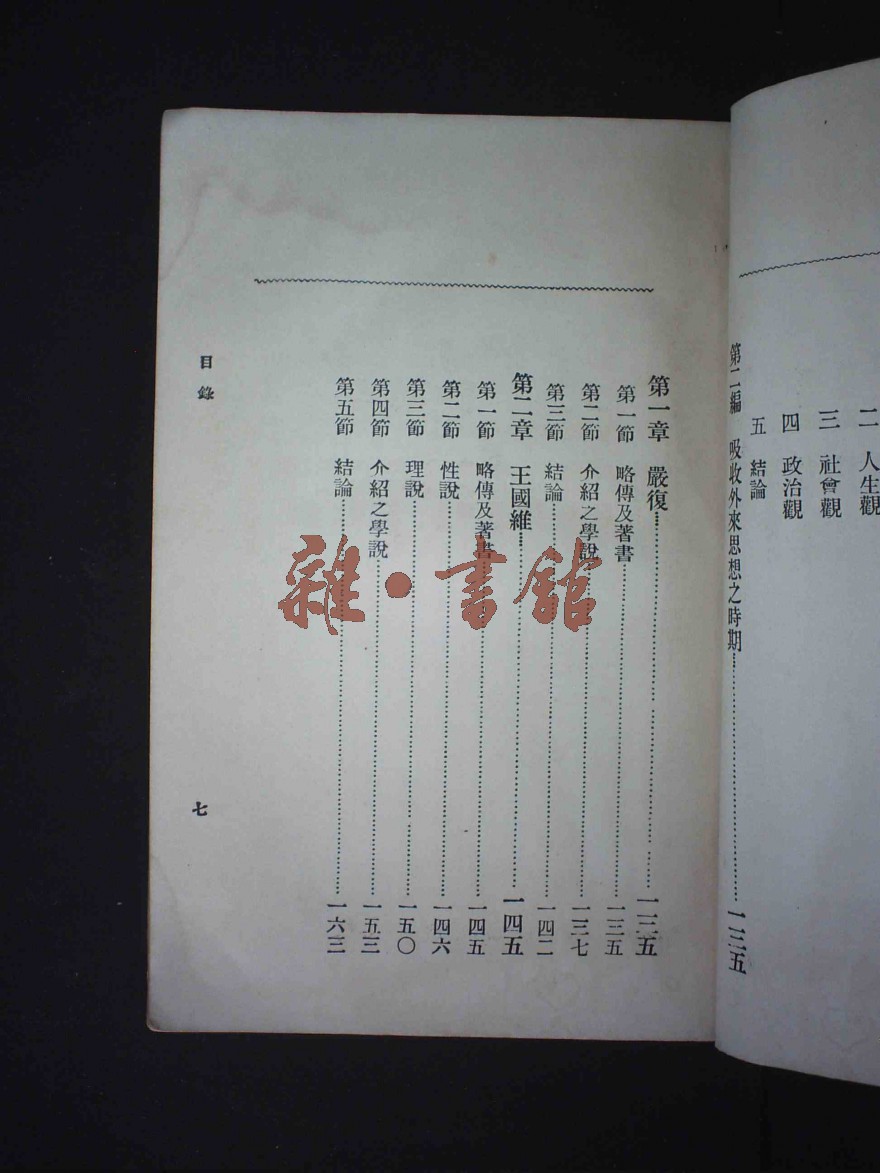 二 人生觀
三 社會觀
四 政治觀
五 結論
第二編 吸收外來思想之時期……一三五
第一章 嚴復……一三五
第一節 略傳及著書……一三五
第二節 介紹之學說……一三七
第三節 結論……一四二
第二章 王國維……一四五
第一節 略傳及著書……一四五
第二節 性說……一四六
第三節 理說……一五〇
第四節 介紹之學說……一五三
第五節 結論……一六三
目錄
七
雜·書館